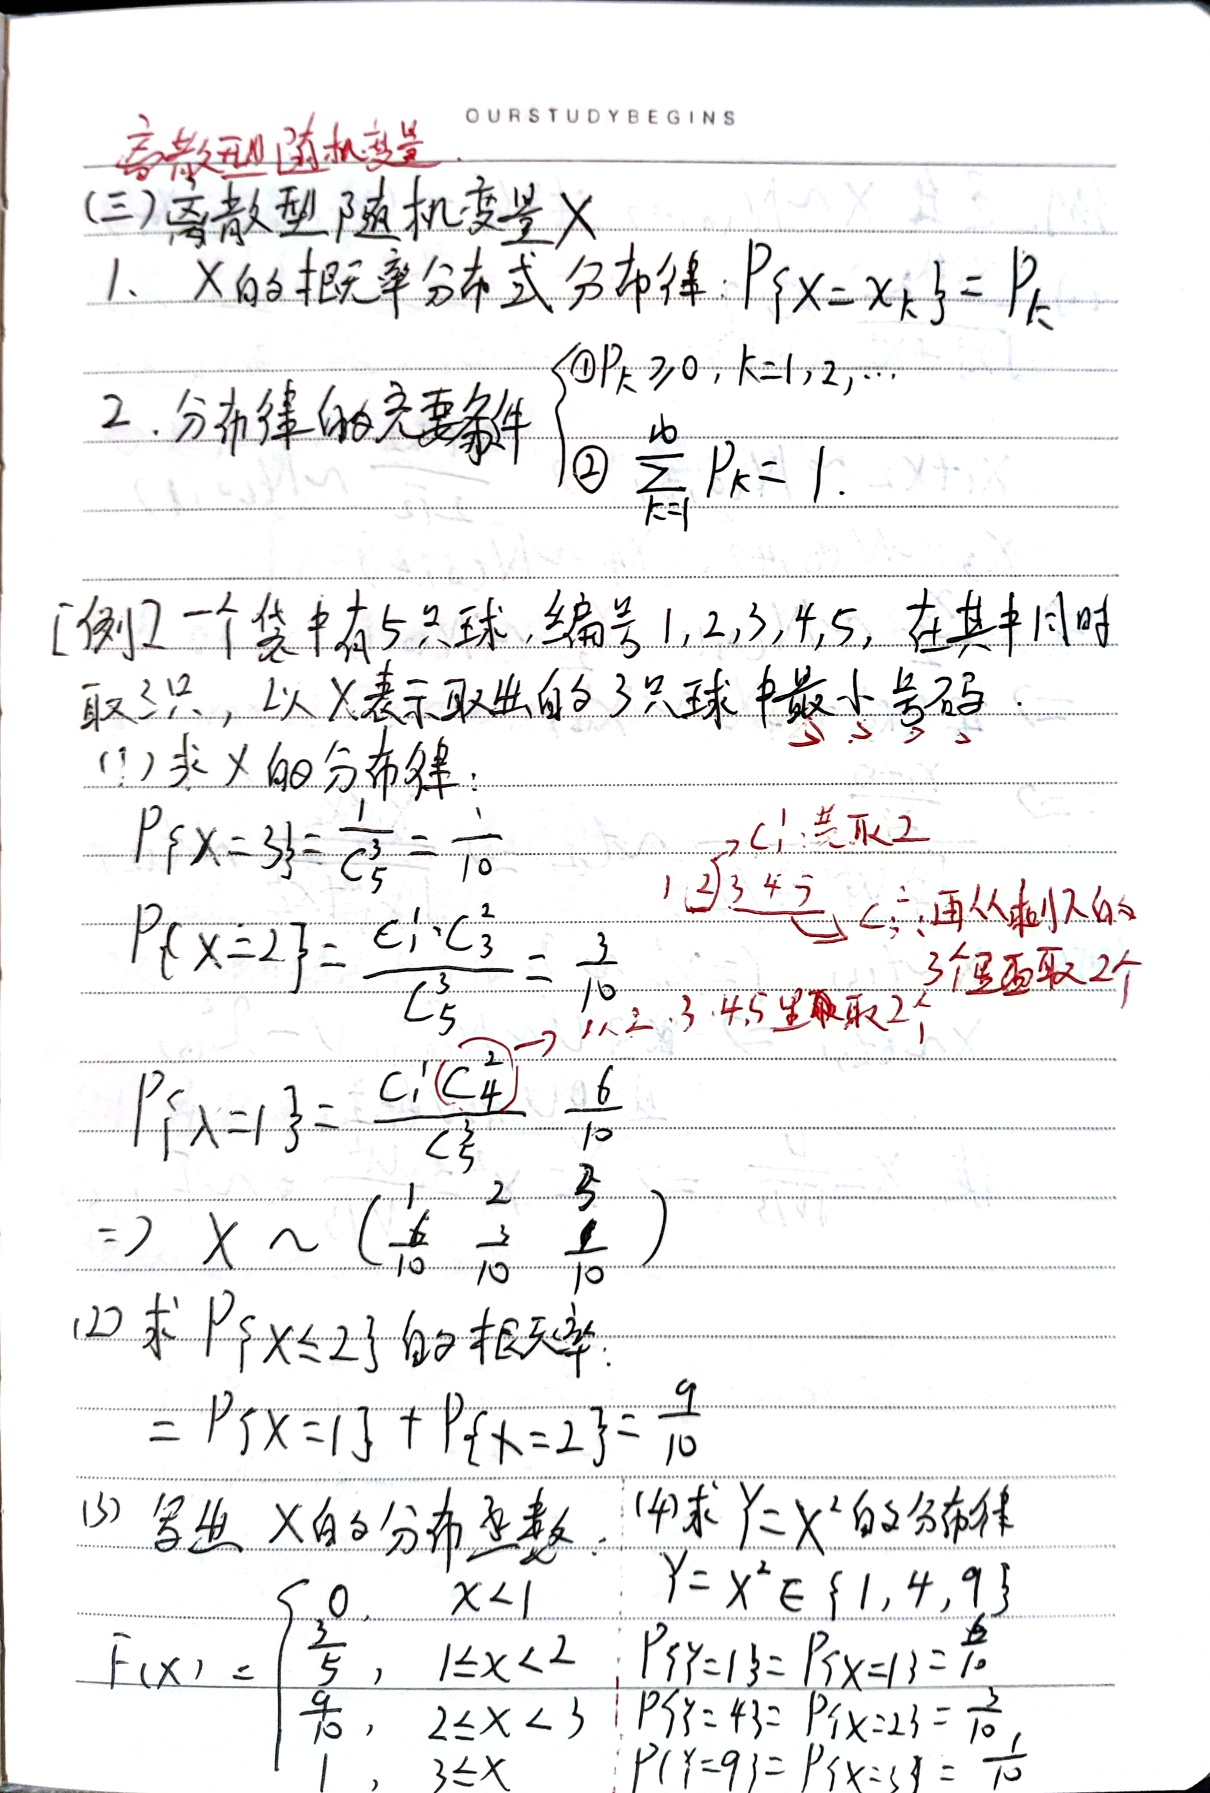 OURSTUDYBEGINS
离散型随机变量.
(三)离散型随机变量X
1、X的概率分布式分布律:P{X=x_k}=P_k
2.分布律的充要条件 { ①P_k≥0, k=1,2,…
② ∑_{k=1}^{∞} P_k=1.
[例] 一个袋中有5只球,编号1,2,3,4,5, 在其中同时
取3只, 以X表示取出的3只球中最小号码.
(1)求X的分布律:
P{X=3}=1/C_5^3=1/10
C_1^1:先取2
1 2 3 4 5
C_3^2:再从剩下的
3个里面取2个
P{X=2}=C_1^1·C_3^2/C_5^3=3/10
→从2.3.4.5里取2个
P{X=1}=C_1^1(C_4^2)/C_5^3 6/10
=> X~( 1 2 3
6/10 3/10 1/10 )
(2)求P{X≤2}的概率:
=P{X=1}+P{X=2}=9/10
(3)写出X的分布函数:
F(x)= { 0, x<1
3/5, 1≤x<2
9/10, 2≤x<3
1, 3≤x
(4)求Y=X²的分布律
Y=X²∈{1,4,9}
P{Y=1}=P{X=1}=6/10
P{Y=4}=P{X=2}=3/10
P{Y=9}=P{X=3}=1/10